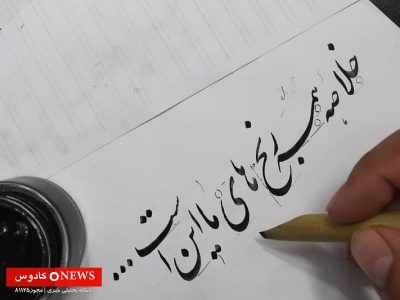 خلاصه همه رنج های ما این است...
کادوس NEWS
پایگاه تحلیلی خبری / مجوز ۸۱۱۲۵